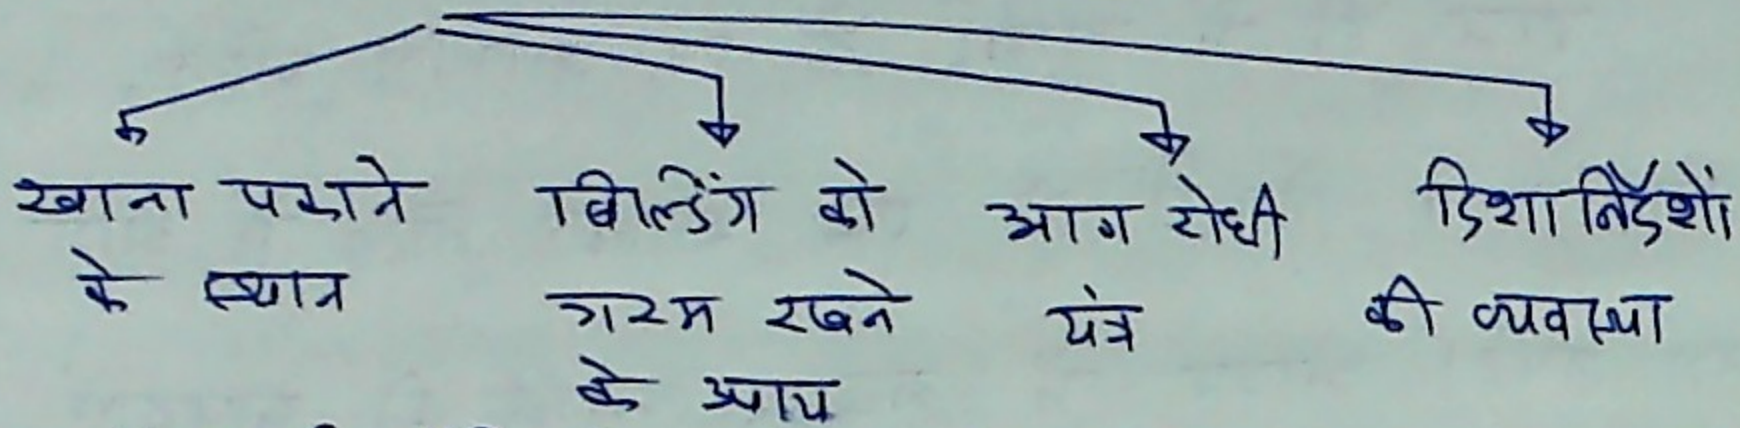 खाना पकाने
के स्थान
बिल्डिंग को
गरम रखने
के उपाय
आग रोधी
यंत्र
दिशा निर्देशों
की व्यवस्था